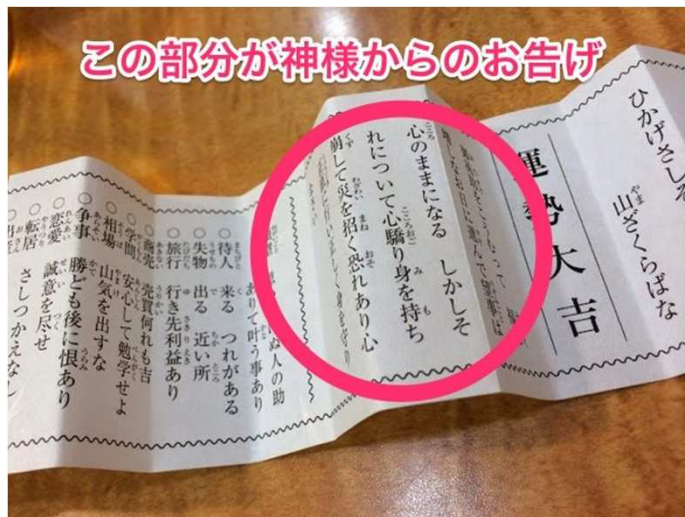 この部分が神様からのお告げ
ひかげさしそ
山ざくらばな
運勢大吉
心のままになる しかしそ
れについて心驕り身を持ち
崩して災を招く恐れあり心
ぬ人の助
ありて叶う事あり
○待人 来る つれがある
○失物 出る 近い所
○旅行 行き先利益あり
○商売 売買何れも吉
○学問 安心して勉学せよ
○相場 山気を出すな
○争事 勝ども後に恨あり
○恋愛 誠意を尽せ
○転居 さしつかえなし